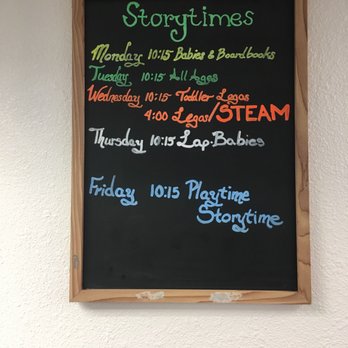 Storytimes
Monday 10:15 Babies & Boardbooks
Tuesday 10:15 All Ages
Wednesday 10:15 Toddler Legos
4:00 Legos/STEAM
Thursday 10:15 Lap-Babies
Friday 10:15 Playtime
Storytime